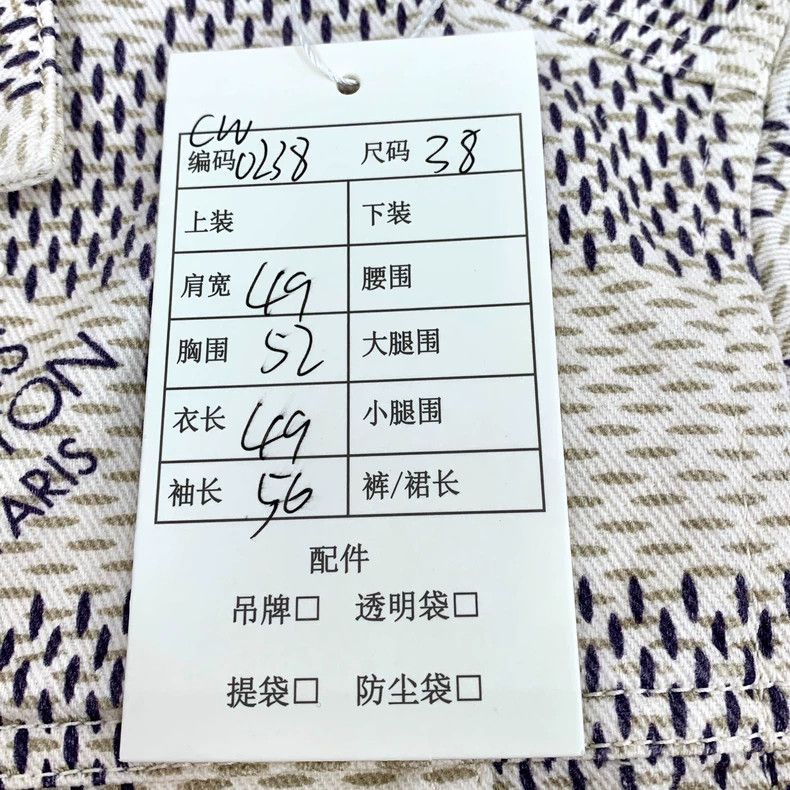 CW
编码 0238 尺码 38
上装 下装
肩宽 49 腰围
胸围 52 大腿围
衣长 49 小腿围
袖长 56 裤/裙长
配件
吊牌□ 透明袋□
提袋□ 防尘袋□
TON
ARIS